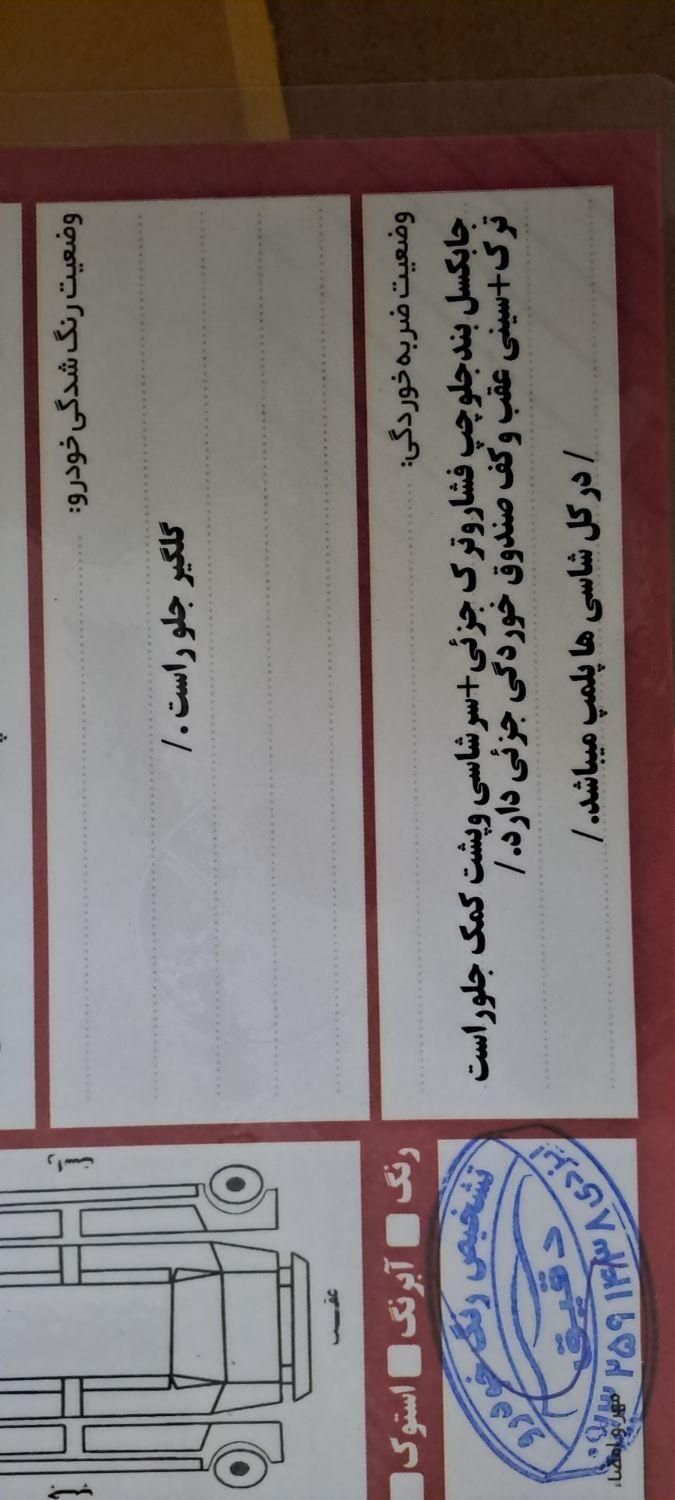 وضعیت رنگ شدگی خودرو:
گلگیر جلو راست ./
وضعیت ضربه خوردگی:
جابکسل بند جلو چپ فشار و ترک جزئی+سر شاسی و پشت کمک جلو راست
ترک+سینی عقب و کف صندوق خوردگی جزئی دارد. /
/ در کل شاسی ها پلمپ میباشد. /
راست
عقب
رنگ
آبرنگ
استوک
تشخیص رنگ خودرو
دقیق
ایزدی
مهر و امضاء